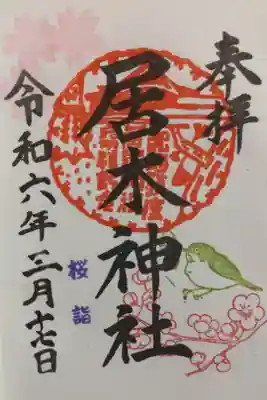 奉拝
居木神社
令和六年三月十七日
桜詣